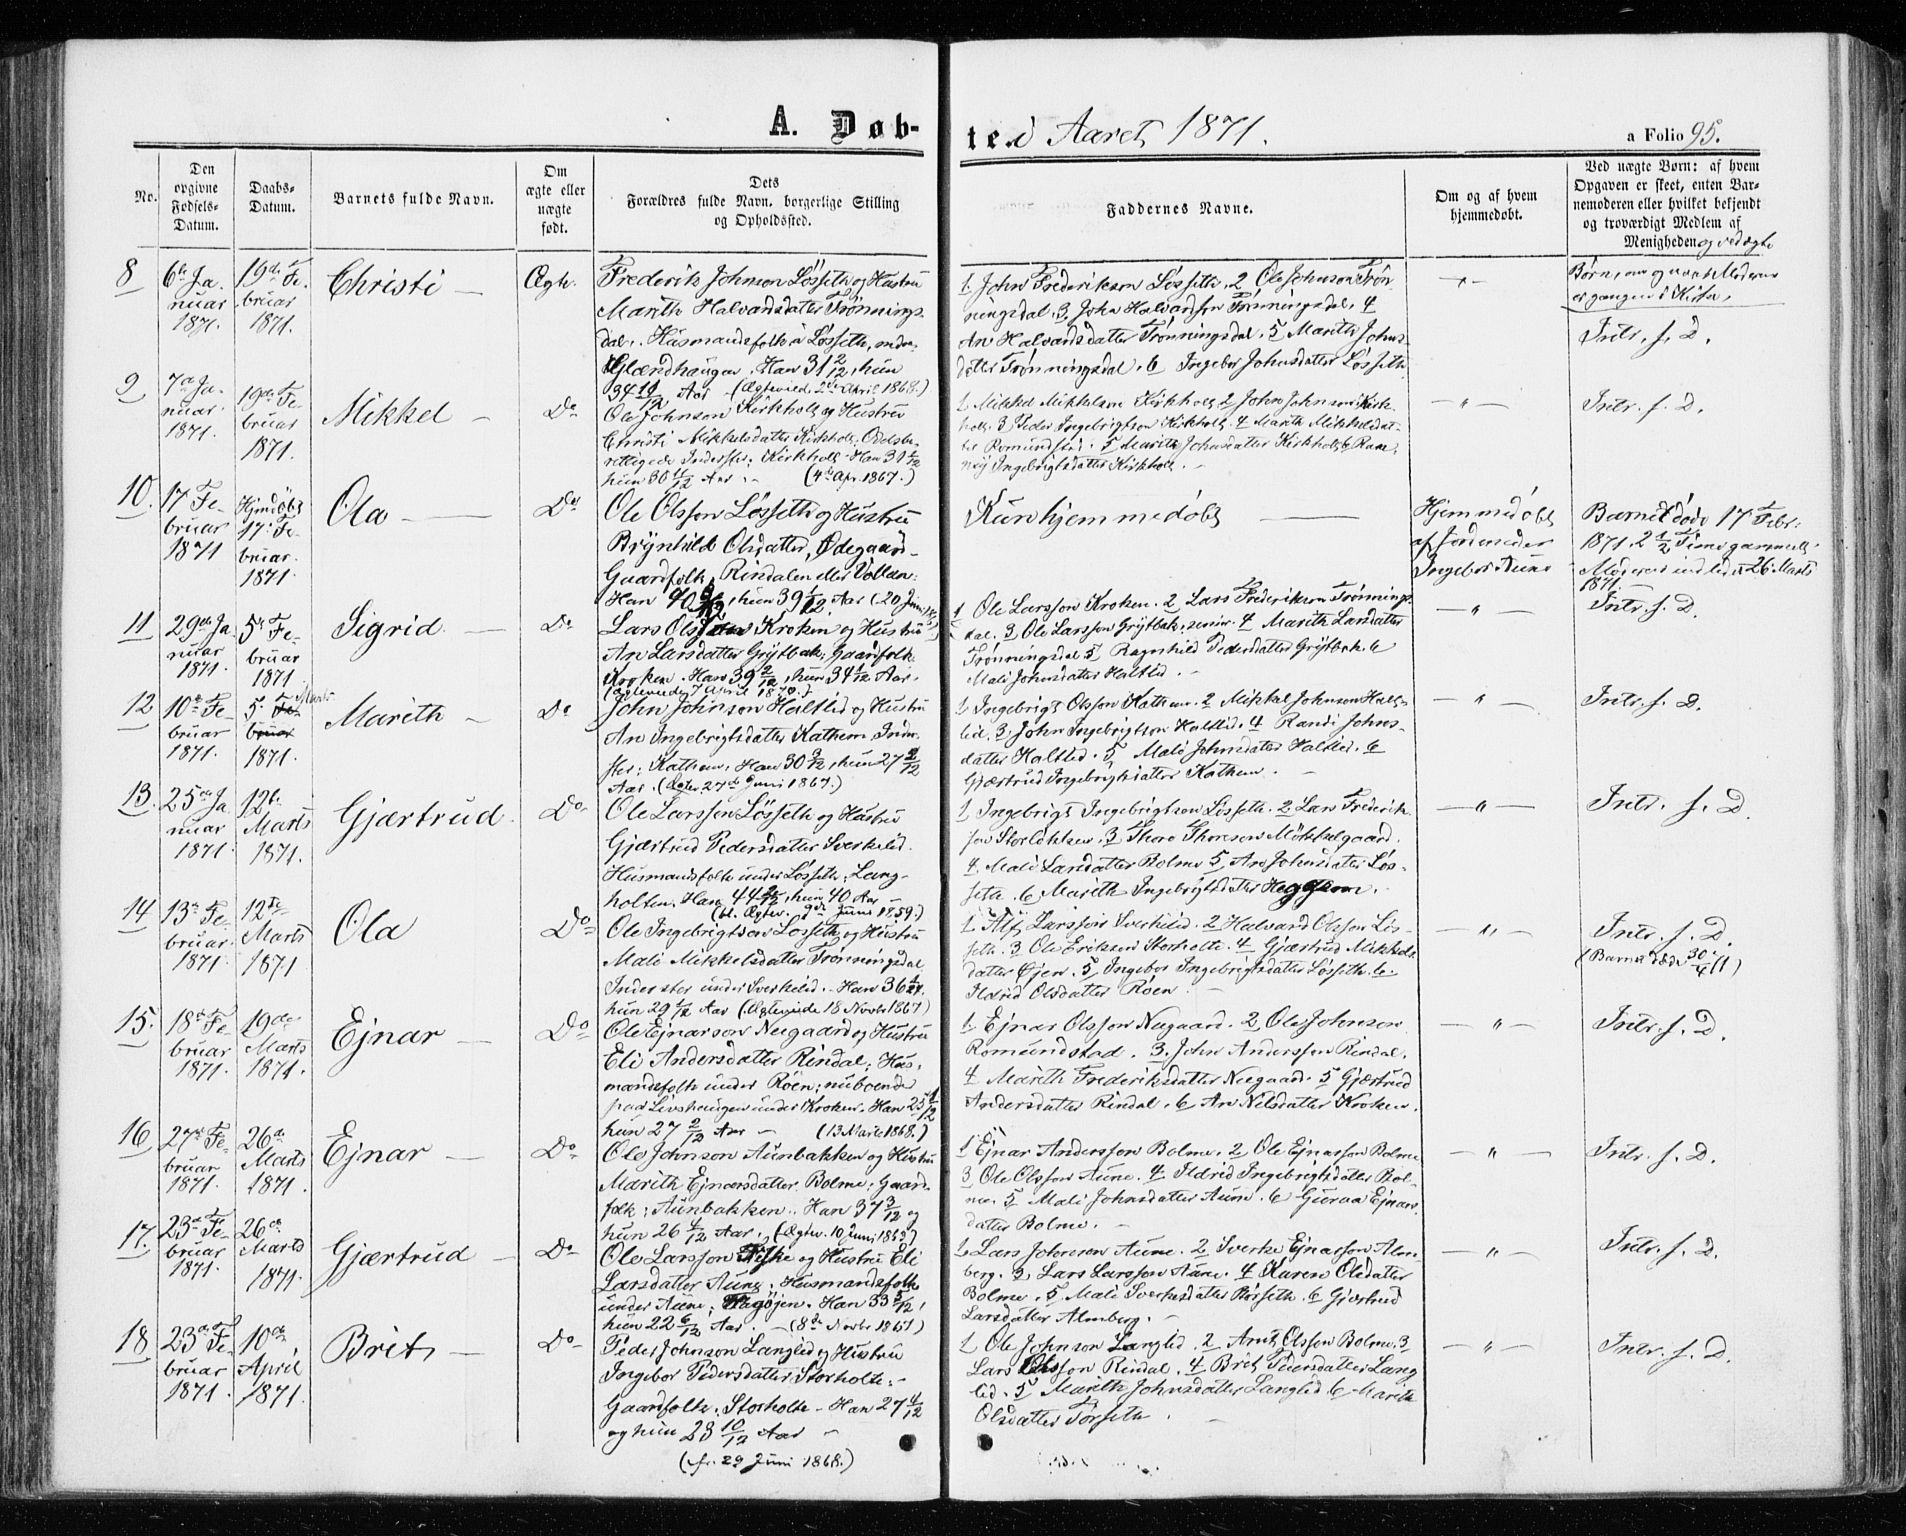 A. Døb-
te i Aaret 1871.
a Folio 95.
No.
Den opgivne Fødsels-Datum.
Daabs-Datum.
Barnets fulde Navn.
Om ægte eller uægte født.
Dets Forældres fulde Navn, borgerlige Stilling og Opholdssted.
Faddernes Navne.
Om og af hvem hjemmedøbt.
Ved uægte Børn: af hvem
Opgaven er skeet, enten Bar-
nemoderen eller hvilket bekjendt
og troværdigt Medlem af
Menigheden og ved ægte
Børn, om og naar Moderen
er gangen i Kirke.
8
6te Ja-
nuar
1871.
19de Fe-
bruar
1871.
Christi —
Ægte.
Frederik Johnson Løsseth og Hustru
Marith Halvardsdatter Trønnings-
dal. Husmandsfolk i Løsseth, nedre
Glændhaugen. Han 31 2/12, hun
34 10/12 Aar — (Ægteviede 2den April 1868.)
1. John Frederikson Løsseth. 2 Ole Johnson Trøn-
ningsdal. 3. John Halvardson Trønningsdal. 4
An Halvardsdatter Trønningsdal. 5 Marith Johns-
datter Trønningsdal. 6 Ingebor Johnsdatter Løsseth.
— " —
Intr. s. D.
9
7de Ja-
nuar
1871.
19de Fe-
bruar
1871.
Mikkel —
Do
Ole Johnson Kirkholt og Hustru
Christi Mikkelsdatter Kirkholt. Oddsbe-
rettigede Inderster: Kirkholt. Han 31
hun 30 11/12 Aar — (4de Apr. 1867.)
1 Mikkel Mikkelson Kirkholt 2 John Johnson Kirk-
holt. 3 Peder Ingebrigtson Kirkholt. 4 Marith Mikkelsdat-
ter Romundstad. 5 Marith Johnsdatter Kirkholt. 6 Ran-
nøy Ingebrigtsdatter Kirkholt. —
— " —
Intr. s. D.
10.
17 Fe-
bruar
1871
Hjemdøbt
17. Fe-
bruar
1871.
Ola —
Do
Ole Olsson Løsseth og Hustru
Brynhild Olsdatter, Ødegaard-
Gaardfolk, Rindalen eller Volden.
Han 40, hun 39 Aar (20 Juni
Kun hjemmedøbt —
Hjemmedøbt
af Jordemoder
Ingebor Aune
Barnet døde 17 Febr.
1871. 2 1/2 Time gammelt.
Moderen indledet 26 Marts
1871.
11
29de Ja-
nuar
1871.
5te Fe-
bruar
1871
Sigrid —
Do
Lars Olsson Kroken og Hustru
An Larsdatter Grytbak; Gaardfolk
Kroken. Han 39 2/12, hun 34 1/12 Aar.
(ægteviede 7 April 1870.)
1 Ole Larsson Kroken. 2 Lars Frederikson Trønnings-
dal. 3 Ole Larsson Grytbak, senior. 4 Marith Larsdatter
Trønningsdal 5 Ragnhild Pedersdatter Grytbak. 6
Mali Johnsdatter Haltlid. —
— " —
Intr. s. D.
12
10de Fe-
bruar
1871.
5te Fe-
bruar Marts
1871.
Marith —
Do
John Johnson Haltlid og Hustru
An Ingebrigtsdatter Kathem. Inder-
ster: Kathem. Han 30 3/12, hun 27 2/12
Aar. (Ægtev. 27de Juni 1867.)
1 Ingebrigt Olsson Kathem. 2 Mikkel Johnson Halt-
lid. 3 John Ingebrigtson Haltlid. 4 Randi Johns-
datter Haltlid. 5 Mali Johnsdatter Haltlid. 6
Gjærtrud Ingebrigtsdatter Kathem. —
— " —
Intr. s. D.
13.
25de Ja-
nuar
1871.
12te
Marts
1871.
Gjærtrud.
Do
Ole Larsson Løsseth og Hustru
Gjærtrud Pedersdatter Sverkelid.
Husmandsfolk under Løsseth; Lang-
holten. Han 44, hun 40 Aar —
(bl. Ægtev. 9de Juni 1859.)
1 Ingebrigt Ingebrigtson Løsseth. 2 Lars Frederik-
son Storløkken. 3 Thore Thoreson Møkkelgaard.
4 Mali Larsdatter Bolme 5 An Johnsdatter Løs-
seth. 6 Marith Ingebrigtsdatter Heggem. —
— " —
Intr. s. D.
14
13de Fe-
bruar
1871.
12te
Marts
1871
Ola
Do
Ole Ingebrigtson Løsseth og Hustru
Mali Mikkelsdatter Trønningsdal
Inderster under Sverkelid. Han 36
hun 29 1/12 Aar (Ægteviede 18 Novbr 1867)
1 Alf Larsson Sverkelid. 2 Halvard Olsson Løs-
seth. 3 Ole Erikson Storholte. 4 Gjærtrud Mikkels-
datter Øien. 5 Ingebor Ingebrigtsdatter Løsseth. 6.
Ildrid Olsdatter Røen. —
— " —
Intr. s. D.
(Barnet døde 30/4 71)
15.
18de Fe-
bruar
1871.
19de
Marts
1871.
Ejnar —
Do
Ole Ejnarson Nergaard og Hustru
Eli Andersdatter Rindal; Hus-
mandsfolk under Røen; nuboende
paa Livshaugen under Kroken. Han 25 1/12
hun 27 2/12 Aar — (13 Marts 1868.)
1 Ejnar Olsson Nergaard. 2 Ole Johnson
Romundstad. 3. John Andersson Rindal.
4 Marith Frederiksdatter Nergaard. 5 Gjærtrud
Andersdatter Rindal. 6 An Nilsdatter Kroken.
— " —
Intr. s. D.
16
27de Fe-
bruar
1871.
26de
Marts
1871.
Ejnar —
Do
Ole Johnson Aunbakken og Hustru
Marith Ejnarsdatter Bolme; Gaard-
folk; Aunbakken. Han 37 3/12 og
hun 26 4/12 Aar. (Ægtev. 10 Juni 1869)
1 Ejnar Andersson Bolme. 2 Ole Ejnarson Bolme
3 Ole Olsson Aune. 4 Ildrid Ingebrigtsdatter Bol-
me. 5 Mali Johnsdatter Aune. 6 Guraa Ejnars-
datter Bolme. —
— " —
Intr. s. D.
17.
23de Fe-
bruar
1871.
26de
Marts
1871.
Gjærtrud —
Do
Ole Larsson Fiske og Hustru Eli
Larsdatter Aune. Husmandsfolk
under Aune; Han 33 5/12,
hun 22 6/12 Aar. — (8de Novbr 1867)
1 Lars Johnson Aune. 2 Sverke Ejnarson Alm-
berg. 3 Lars Larsson Aune. 4 Karen Olsdatter
Bolme. 5 Mali Sverkesdatter Løsseth. 6 Gjærtrud
Larsdatter Almberg. —
— " —
Intr. s. D.
18
23de Fe-
bruar
1871.
10de
April
1871.
Brit —
Do
Peder Johnson Langlid og Hustru
Ingebor Pedersdatter Storholte. —
Gaardfolk; Storholte — Han 27 4/12
og hun 23 10/12 Aar —
(fr. 29 Juni 1868.)
1 Ole Johnson Langlid. 2 Arnt Olsson Bolme. 3
Lars Olsson Rindal. 4 Brit Pedersdatter Lang-
lid. 5 Marith Johnsdatter Langlid 6 Marith
Olsdatter Tørseth. —
— " —
Intr. s. D.